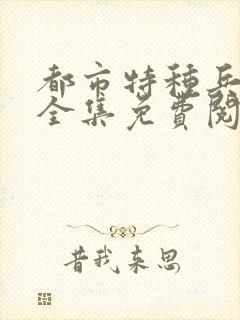 都市特种兵
全集免費閱
昔我来思